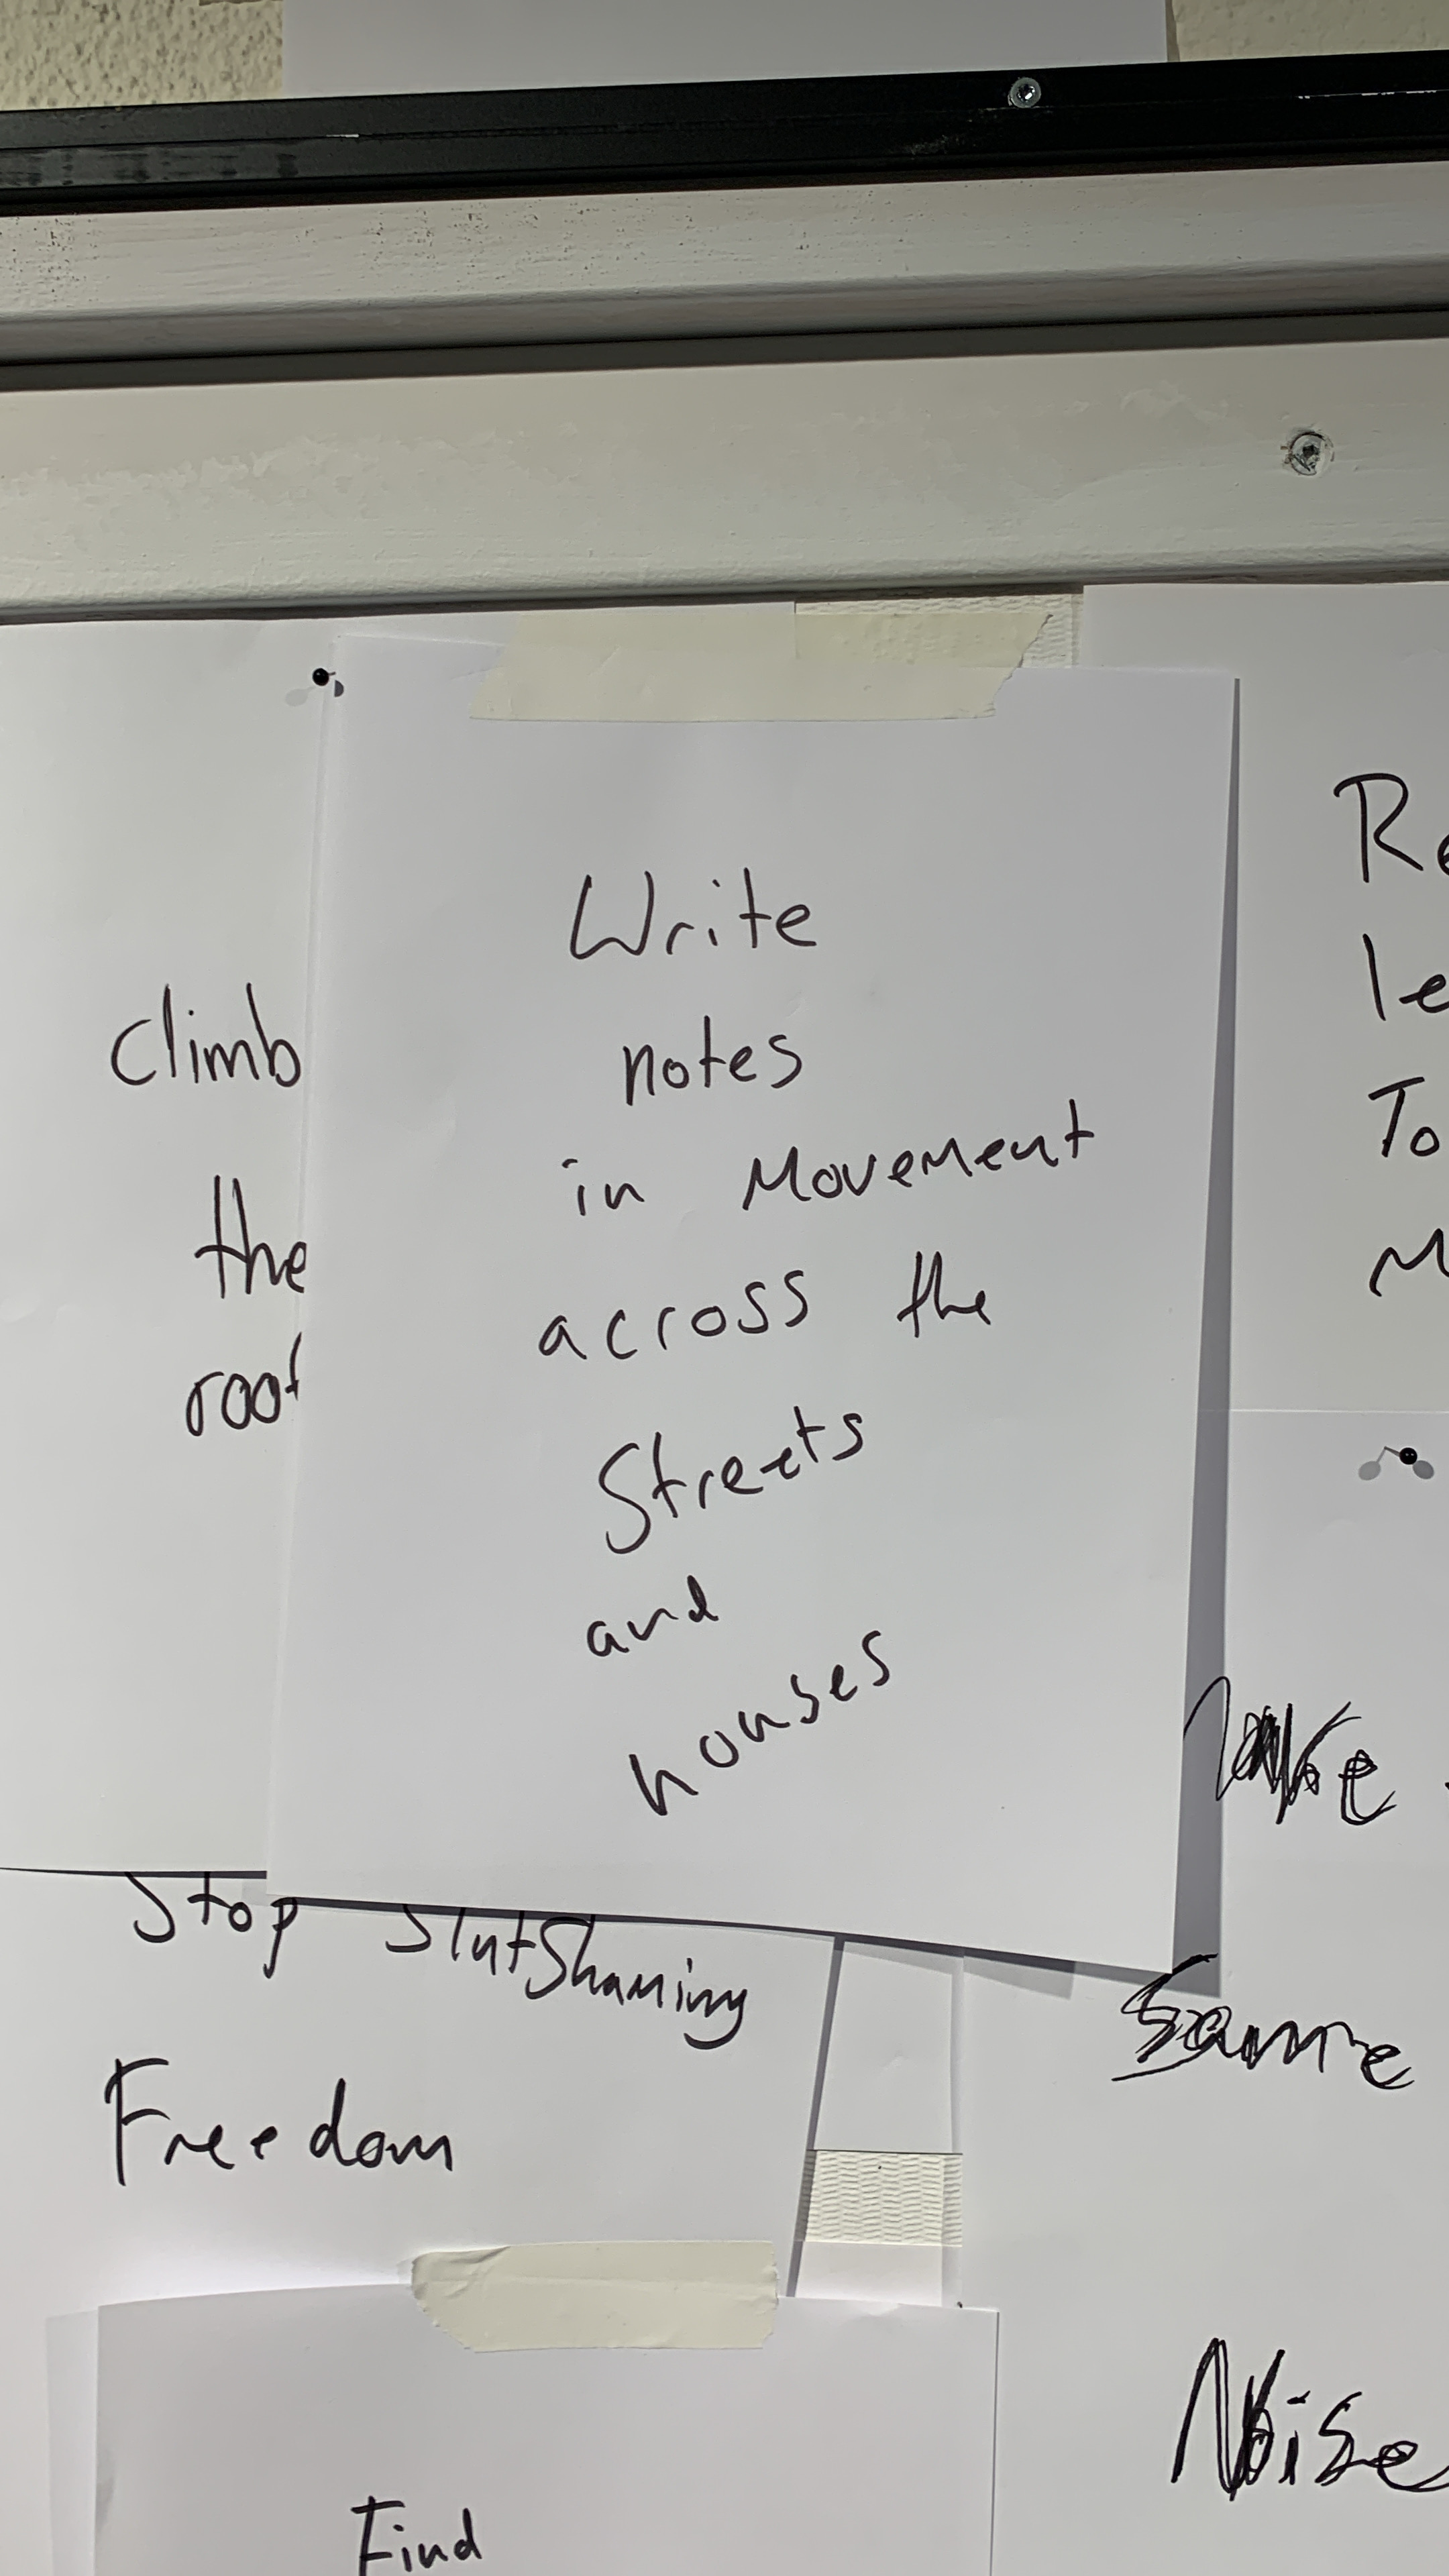 Write
notes
in Movement
across the
Streets
and
houses
Climb
the
roof
Stop SlutShaming
Freedom
Find
Re
le
To
M
Make
Some
Noise